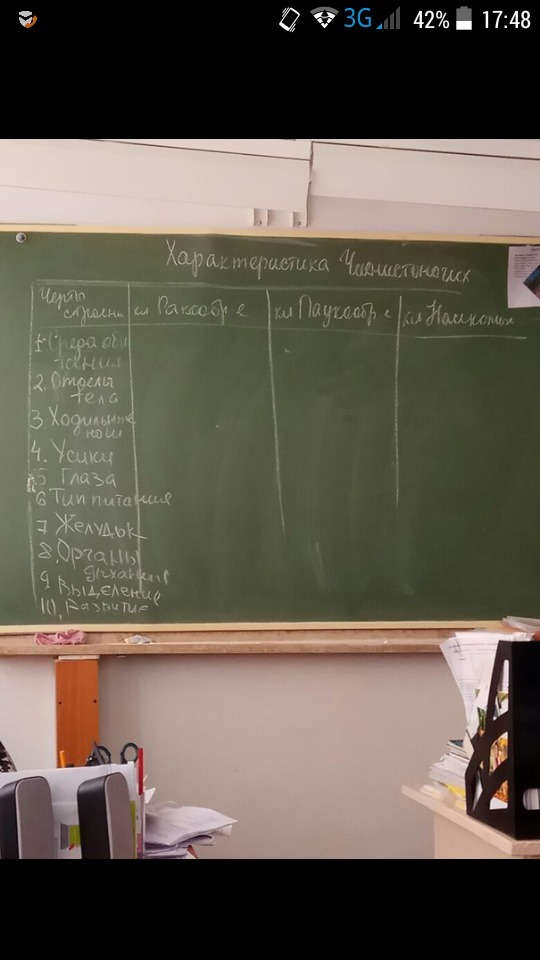 3G 42% 17:48
Характеристика Членистоногих
Черты
строения
кл Ракообр е
кл Паукообр е
кл Насекомые
1. Среда оби
тания
2. Отделы
тела
3. Ходильные
ноги
4. Усики
5 Глаза
6 Тип питания
7 Желудок
8. Органы
дыхания
9 Выделение
10. Развитие